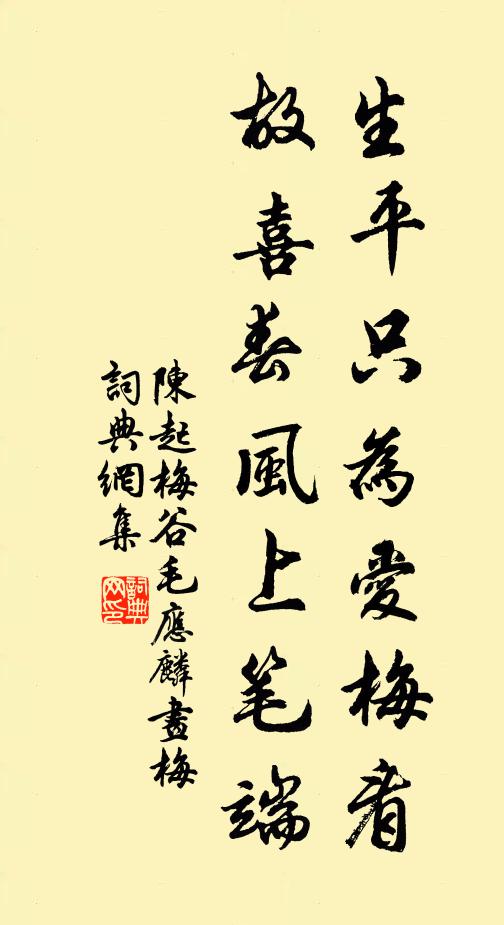 生平只為愛梅看
故喜春風上笔端
陳起梅谷毛應麟畫梅
詞典網集
詞典網印